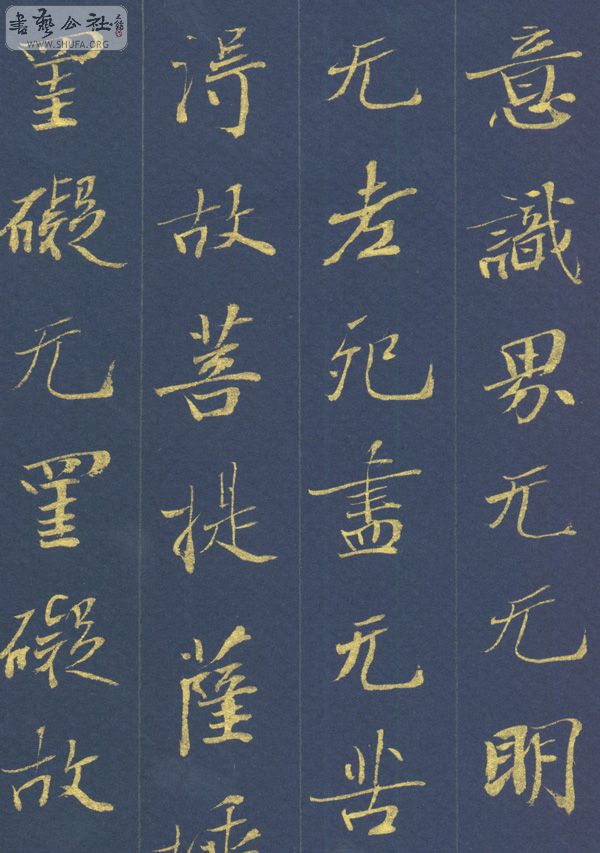 書藝公社
WWW.SHUFA.ORG
意識界无无明
无老死盡无苦
得故菩提薩
罣礙无罣礙故